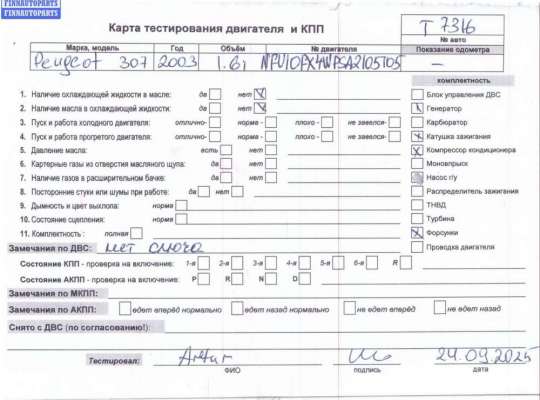 FINNAUTOPARTS
FINNAUTOPARTS
Карта тестирования двигателя и КПП
T 7316
№ авто
Марка, модель Год Объём № двигателя Показание одометра
Peugeot 307 2003 1.6i –
комплектность
1. Наличие охлаждающей жидкости в масле: да нет X
2. Наличие масла в охлаждающей жидкости: да нет X
3. Пуск и работа холодного двигателя: отлично- норма - плохо - не завелся-
4. Пуск и работа прогретого двигателя: отлично- норма - плохо - не завелся-
5. Давление масла: есть нет
6. Картерные газы из отверстия масляного щупа: да нет
7. Наличие газов в расширительном бачке: да нет
8. Посторонние стуки или шумы при работе: да нет
9. Дымность и цвет выхлопа: норма
10. Состояние сцепления: норма
11. Комплектность : полная
Блок управления ДВС
X Генератор
Карбюратор
X Катушка зажигания
X Компрессор кондиционера
Моновпрыск
Насос г/у
Распределитель зажигания
ТНВД
Турбина
X Форсунки
Проводка двигателя
Замечания по ДВС:
Состояние КПП - проверка на включение: 1-я 2-я 3-я 4-я 5-я 6-я R
Состояние АКПП - проверка на включение: P R N D
Замечания по МКПП:
Замечания по АКПП: едет вперед нормально едет назад нормально не едет вперёд не едет назад
Снято с ДВС (по согласованию!):
Тестировал: Artur 24.09.2025
ФИО подпись дата